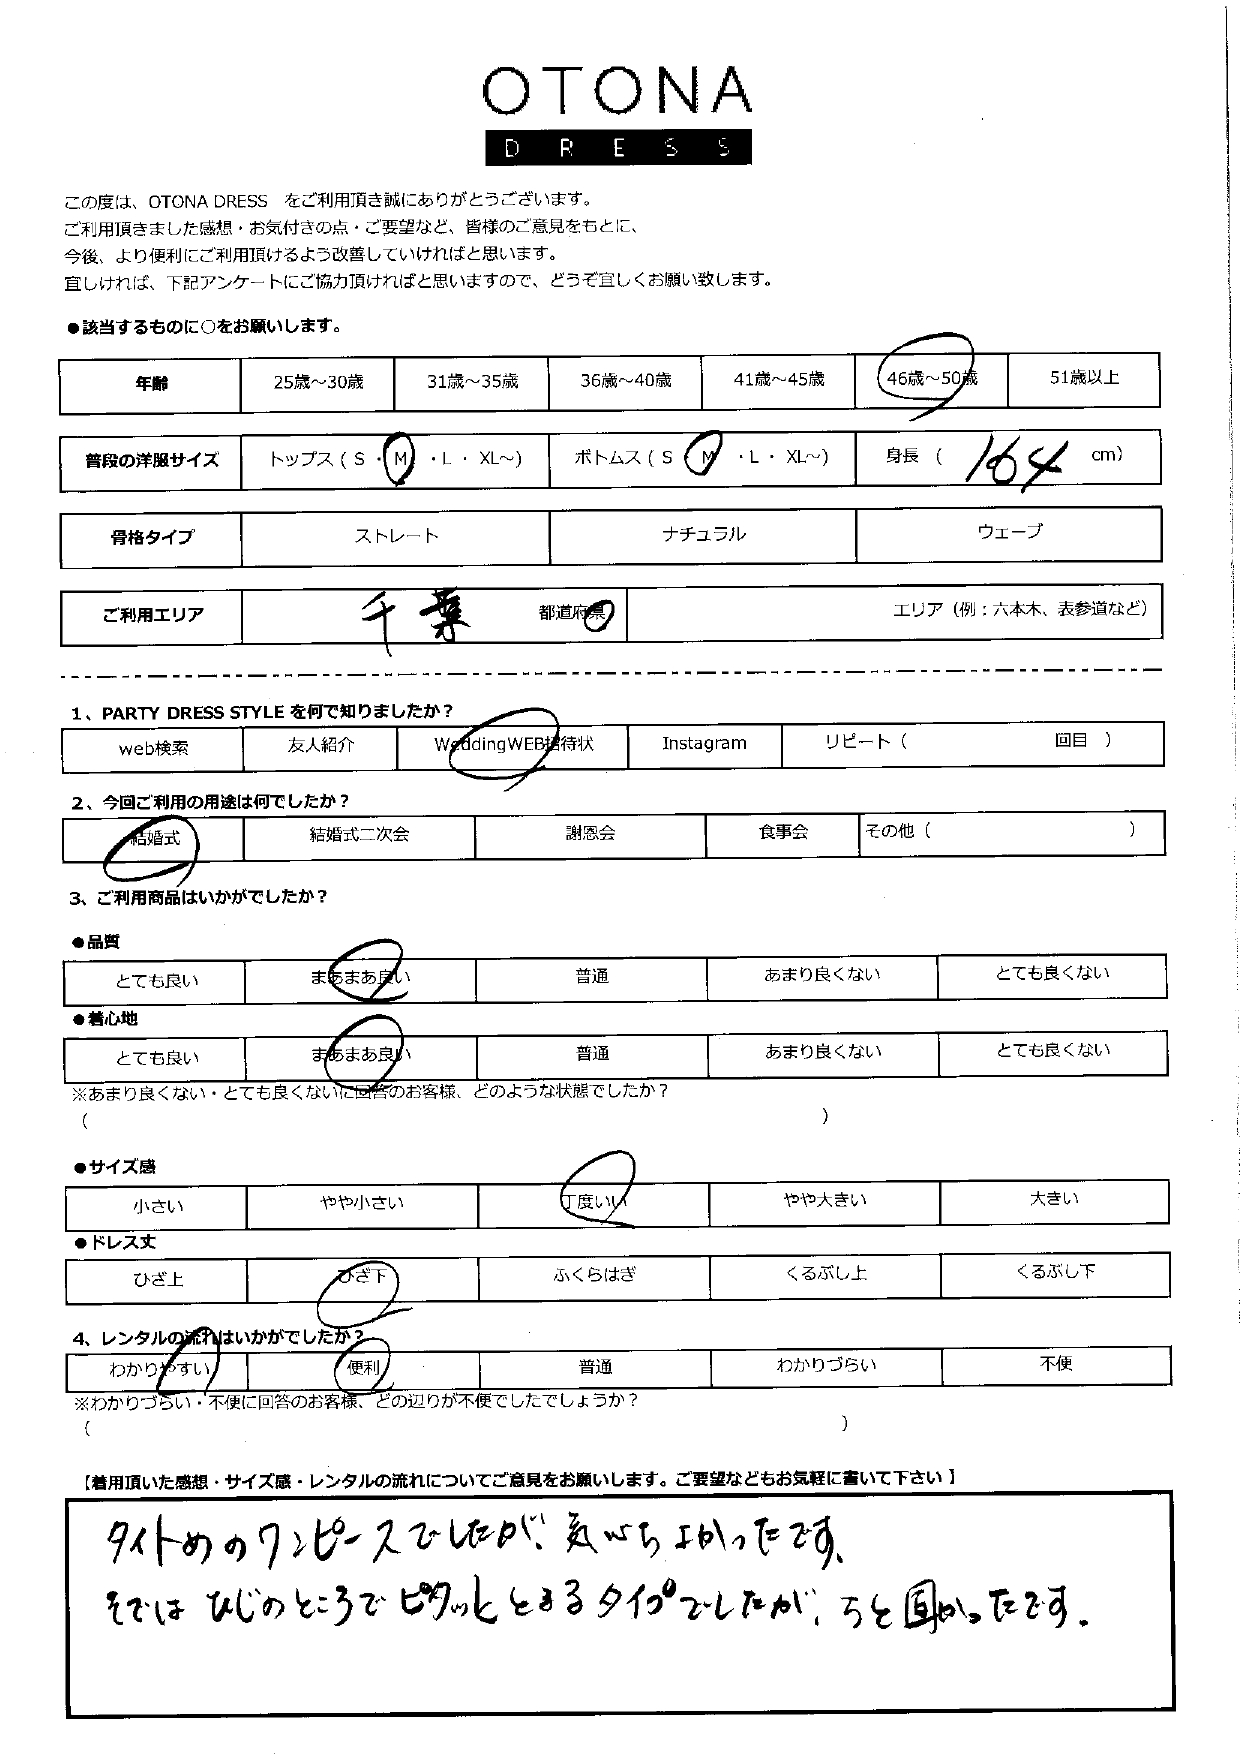 OTONA
DRESS
この度は、OTONA DRESS をご利用頂き誠にありがとうございます。
ご利用頂きました感想・お気付きの点・ご要望など、皆様のご意見をもとに、
今後、より便利にご利用頂けるよう改善していければと思います。
宜しければ、下記アンケートにご協力頂ければと思いますので、どうぞ宜しくお願い致します。
●該当するものに○をお願いします。
年齢 25歳～30歳 31歳～35歳 36歳～40歳 41歳～45歳 46歳～50歳 51歳以上
普段の洋服サイズ トップス（ S ・ M ・ L ・ XL～） ボトムス（ S ・ M ・ L ・ XL～） 身長 （ 164 cm）
骨格タイプ ストレート ナチュラル ウェーブ
ご利用エリア 千葉 都道府県 エリア（例：六本木、表参道など）
1、PARTY DRESS STYLE を何で知りましたか？
web検索 友人紹介 WeddingWEB招待状 Instagram リピート（ 回目 ）
2、今回ご利用の用途は何でしたか？
結婚式 結婚式二次会 謝恩会 食事会 その他（ ）
3、ご利用商品はいかがでしたか？
●品質
とても良い まあまあ良い 普通 あまり良くない とても良くない
●着心地
とても良い まあまあ良い 普通 あまり良くない とても良くない
※あまり良くない・とても良くないに回答のお客様、どのような状態でしたか？
（ ）
●サイズ感
小さい やや小さい 丁度いい やや大きい 大きい
●ドレス丈
ひざ上 ひざ下 ふくらはぎ くるぶし上 くるぶし下
4、レンタルの流れはいかがでしたか？
わかりやすい 便利 普通 わかりづらい 不便
※わかりづらい・不便に回答のお客様、どの辺りが不便でしたでしょうか？
（ ）
【着用頂いた感想・サイズ感・レンタルの流れについてご意見をお願いします。ご要望などもお気軽に書いて下さい】
タイトめのワンピースでしたが、気もちよかったです。
そではひじのところでピタッととまるタイプでしたが、ちと固かったです。